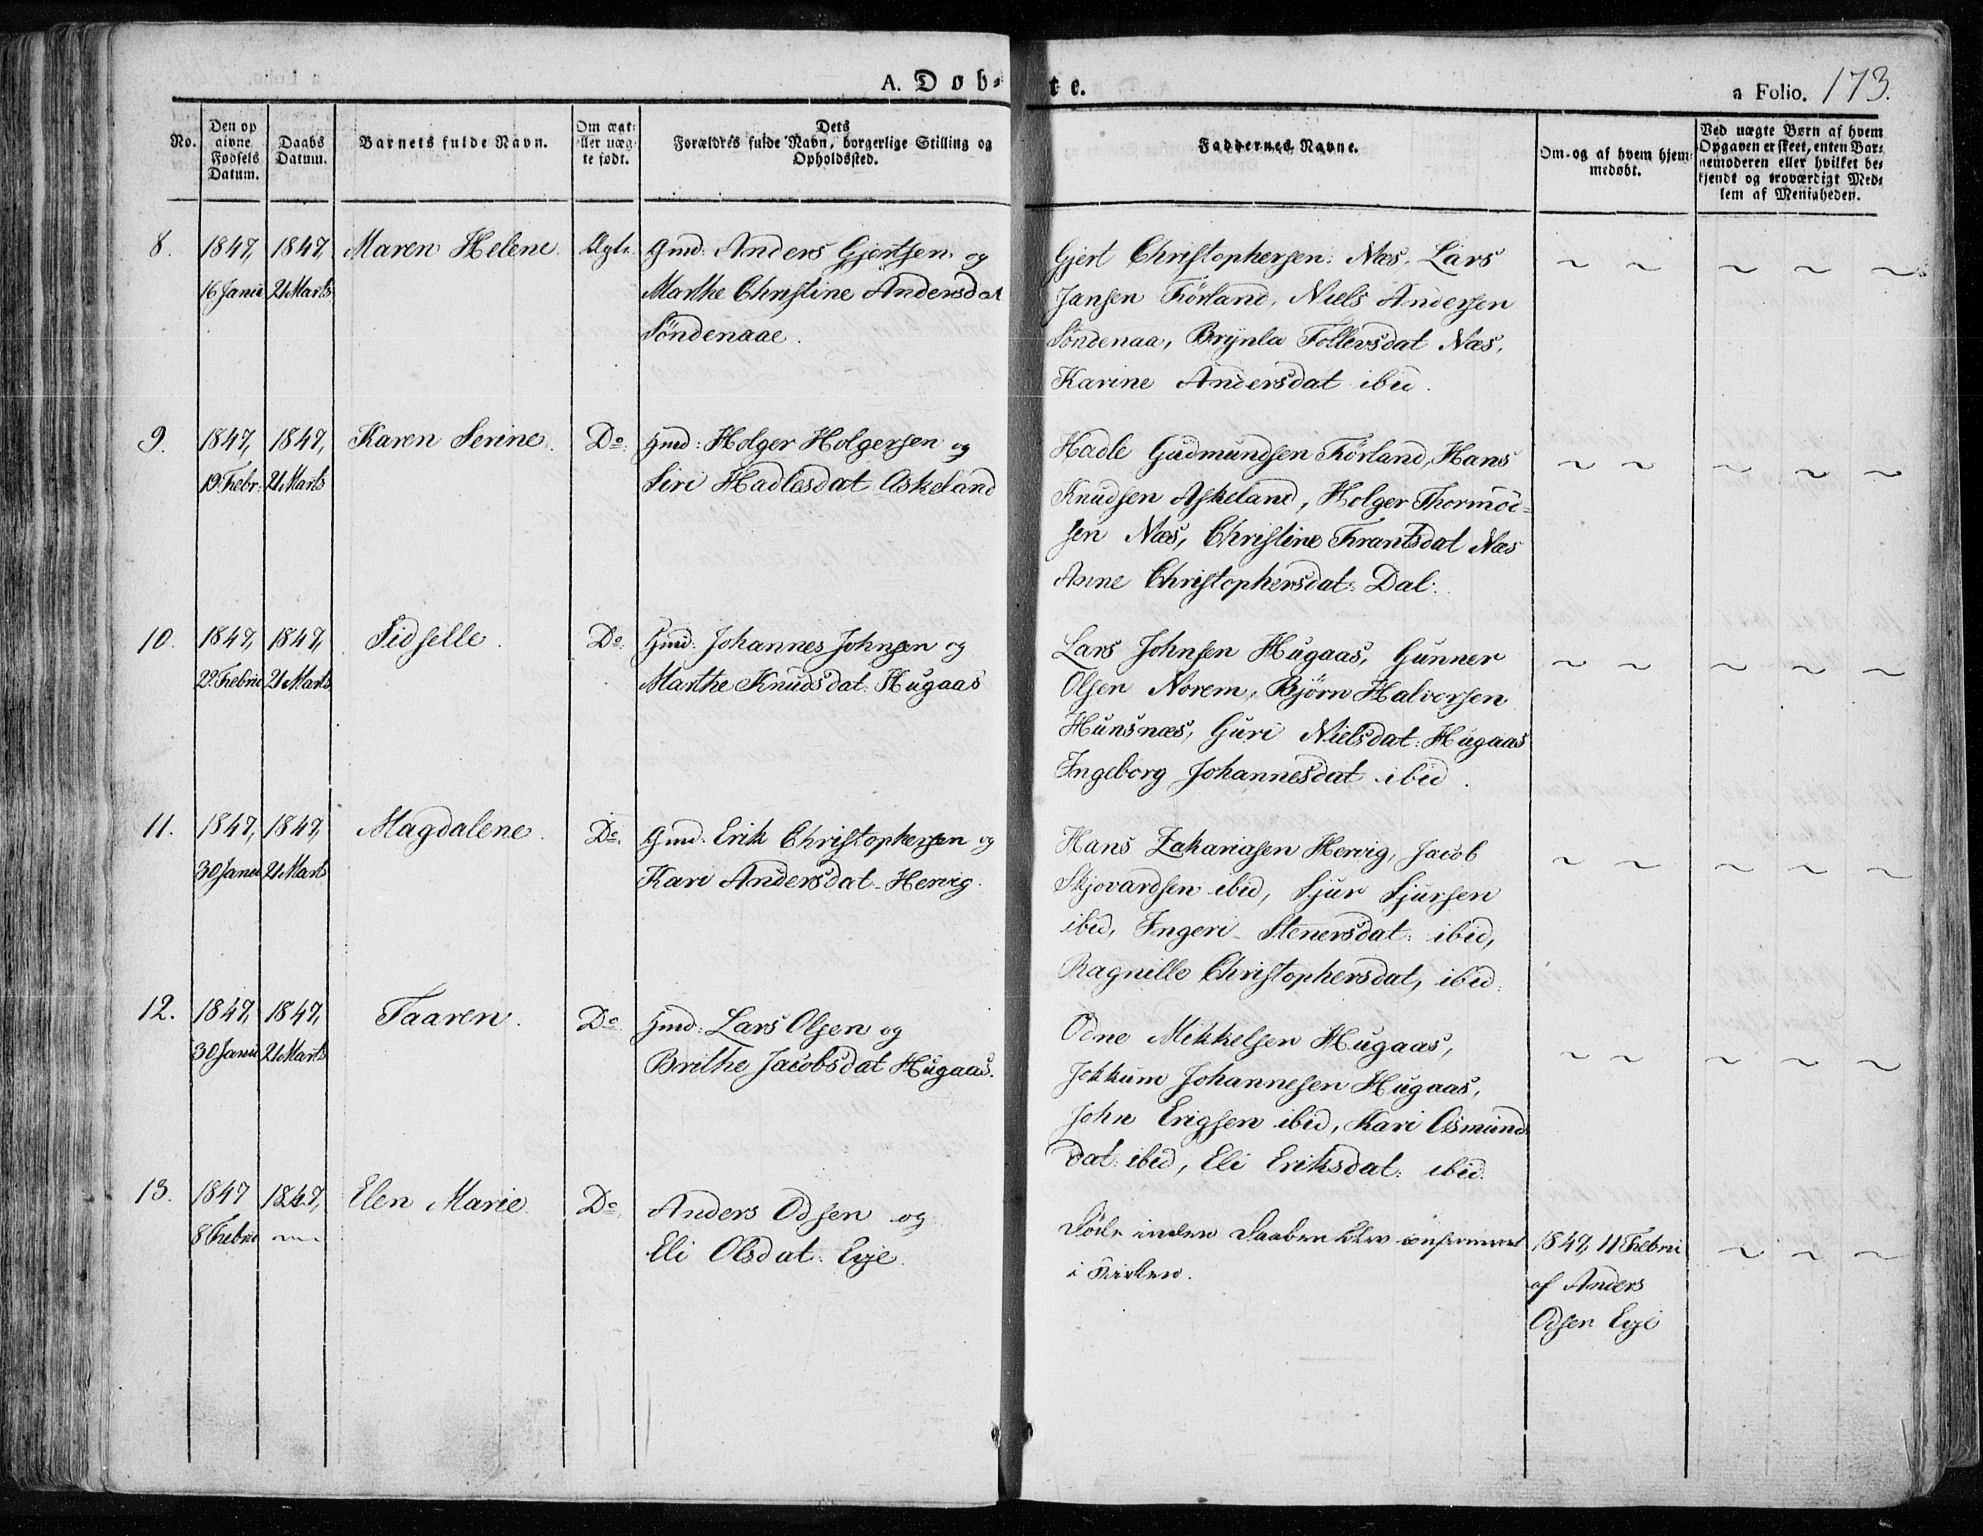 A. Døb-te. a Folio. 173.
No. | Den opgivne Fødsels Datum. | Daabs Datum. | Barnets fulde Navn. | Om ægte eller uægte født. | Dets Forældres fulde Navn, borgerlige Stilling og Opholdssted. | Faddernes Navne. | Om- og af hvem hjemmedøbt. | Ved uægte Børn af hvem Opgaven er skeet, enten Barnemoderen eller hvilket bekjendt og troværdigt Medlem af Menigheden.
8. 1847, 1847, Maren Helene. Ægte Gmd: Anders Gjertsen og
16 Janu 21 Marts Marthe Christine Andersdat
Søndenaae.
Gjert Christophersen: Næs, Lars
Jansen Førland, Niels Andersen
Søndenaa, Brynla Tollevsdat Næs,
Karine Andersdat ibid.
9. 1847, 1847, Karen Serine. Do. Gmd: Holger Holgersen og
19 Febr: 21 Marts Siri Hadlesdat Askeland
Hadle Gudmundsen Førland, Hans
Knudsen Askeland, Holger Thormod-
sen Næs, Christine Frantsdat Næs
Anne Christophersdat: Dal.
10. 1847, 1847, Sidselle. Do. Gmd: Johannes Johnsen og
Febru 21 Marts Marthe Knudsdat: Hugaas
Lars Johnsen Hugaas, Gunner
Olsen Norem, Bjørn Halvorsen
Hunsnæs, Guri Nielsdat: Hugaas
Ingeborg Johannesdat ibid.
11. 1847, 1847, Magdalene. Do. Gmd: Erik Christophersen og
30 Janu 21 Marts Kari Andersdat Hervig.
Hans Zakariasen Hervig, Jacob
Skjovardsen ibid, Sjur Sjursen
ibid, Ingeri Stenersdat: ibid,
Ragnille Christophersdat, ibid.
12. 1847, 1847, Taaren. Do. Gmd: Lars Olsen og
30 Janu 21 Marts Brithe Jacobsdat Hugaas.
Odne Mikkelsen Hugaas,
Jokkum Johannesen Hugaas,
John Erigsen ibid, Kari Osmund
dat: ibid, Eli Eriksdat: ibid.
13. 1847 1847, Elen Marie. Do. Anders Odsen og
8 Febru Eli Olsdat: Eye.
Døde inden Daaben blev confirmeret
i Kirken.
1847, 11 Febru
af Anders
Odsen Eye